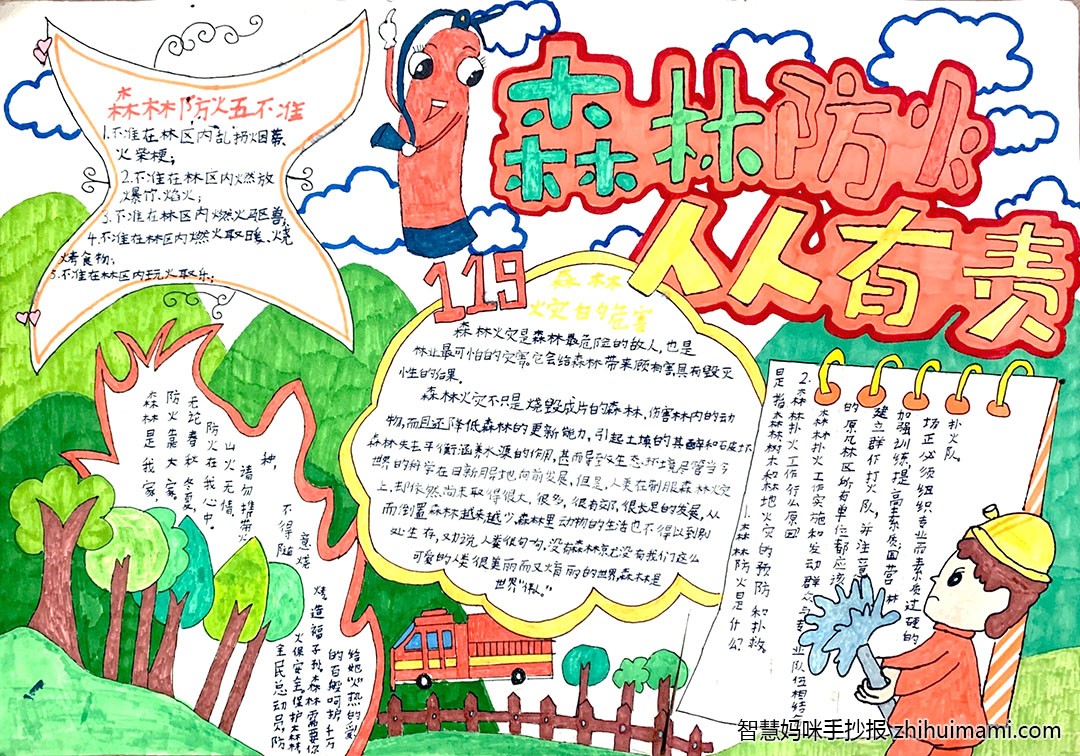 森林防火
人人有责
119
森林防火五不准
1.不准在林区内乱扔烟蒂、
火柴梗;
2.不准在林区内燃放
爆竹、焰火;
3.不准在林区内燃火驱兽;
4.不准在林区内燃火取暖、烧
烤食物;
5.不准在林区内玩火取乐;
森林
火灾的危害
森林火灾是森林最危险的敌人,也是
林业最可怕的灾害。它会给森林带来
具有毁灭
性的后果。
森林火灾不只是烧毁成片的森林,伤害林内的动
物,而且还降低森林的更新能力,引起土壤的
森林失去平衡涵养水源的作用,甚而导致生态环境
世界的科学在日新月
地向前发展,但是,人类在制服森林火灾
上,却依然尚未取得很大,很多,很有效,很长足的发展,从
而倒置森林越来越少。森林里动物的生活也不得以到别
处生存,
没有森林
没有我们这么
可爱的人类很美丽而又
丽的世界,森林是
世界
森林是我家,
防火靠大家,
无论春秋冬夏,
防火在我心中。
山火无情,
请勿携带火
种,
不得随
意烧
烤,
造福子秋,
火保安全,保护大森林,
全民总动员,防
森林需要你
的百般呵护,千万
给她火热的爱
1.森林防火是什么?
是指森林、林木和林地火灾的预防和扑救
2.森林扑火工作行么原因
森林扑火工作实施和发动群众与专业队伍相结
的原凡林区所有单位都应该
建立群众打火队,并注意
加强训练,提高素质;国营林
场正必须组织专业而素质过硬的
扑火队。
智慧妈咪手抄报-zhihuimami.com